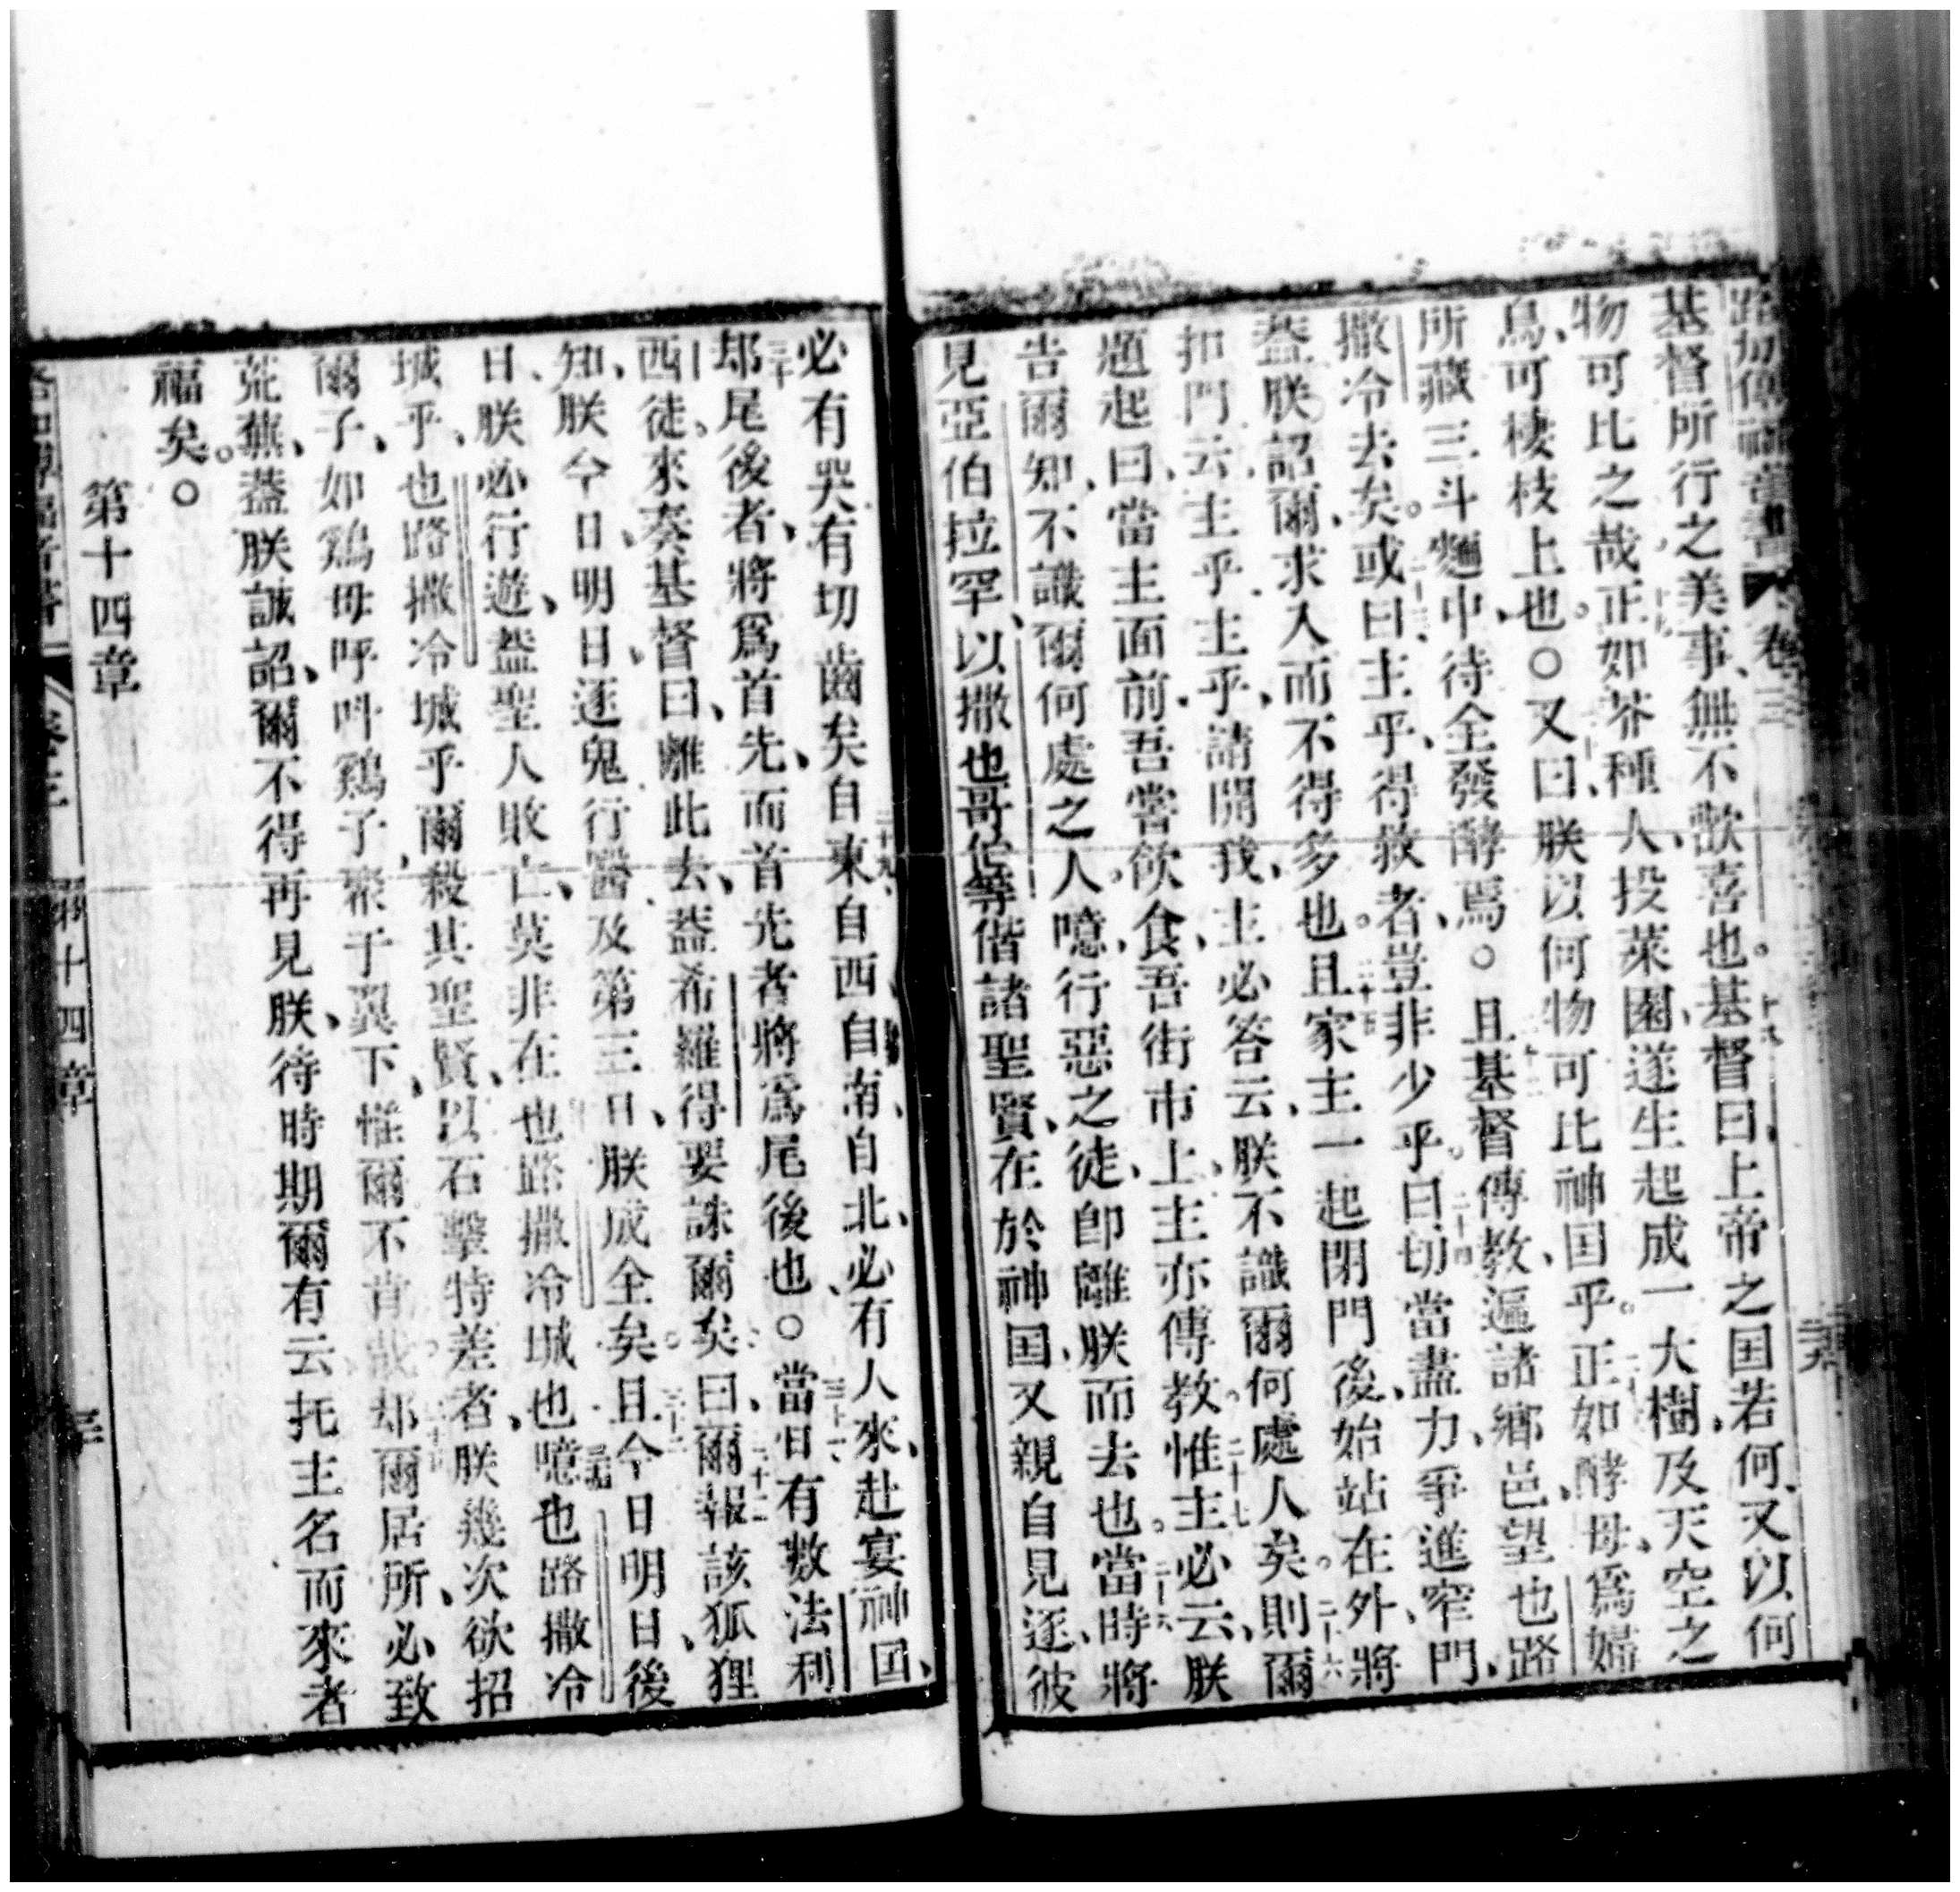 路加傳福音書 卷三
基督所行之美事、無不歡喜也。十八基督曰、上帝之囯若何、又以何
物可比之哉、十九正如芥種、人投菜園、遂生起成一大樹、及天空之
鳥、可棲枝上也。○二十又曰、朕以何物可比神囯乎。二十一正如酵母、爲婦
所藏三斗麵中、待全發酵焉。○二十二且基督傳教、遍諸鄉邑、望也路
撒冷去矣。二十三或曰、主乎、得救者、豈非少乎。曰、二十四切當盡力、爭進窄門、
蓋朕詔爾、求入而不得多也。二十五且家主一起閉門後、始站在外、將
扣門云、主乎主乎、請開我、主必答云、朕不識爾何處人矣。二十六則爾
題起曰、當主面前、吾嘗飲食、吾街市上、主亦傳教。二十七惟主必云、朕
告爾知、不識爾何處之人。噫、行惡之徒、卽離朕而去也。二十八當時將
見亞伯拉罕、以撒也哥伯等偕諸聖賢、在於神囯、又親自見逐、彼
必有哭有切齒矣、二十九自東自西自南、自北、必有人來、赴宴神囯、
三十却尾後者、將爲首先、而首先者將爲尾後也。○三十一當日有數法利
西徒、來奏基督曰、離此去、蓋希羅得要誅爾矣。三十二曰、爾報該狐狸
知、朕今日、明日、逐鬼行醫、及第三日、朕成全矣。三十三且今日明日、後
日、朕必行遊、蓋聖人敗亡、莫非在也路撒冷城也。三十四噫也路撒冷
城乎、也路撒冷城乎、爾殺其聖賢、以石擊特差者、朕幾次欲招
爾子、如鷄母呼呌鷄子、聚于翼下、惟爾不肯哉。三十五却爾居所、必致
荒蕪、蓋朕誠詔、爾不得再見朕、待時期爾有云、托主名而來者
福矣。○
第十四章
第十四章